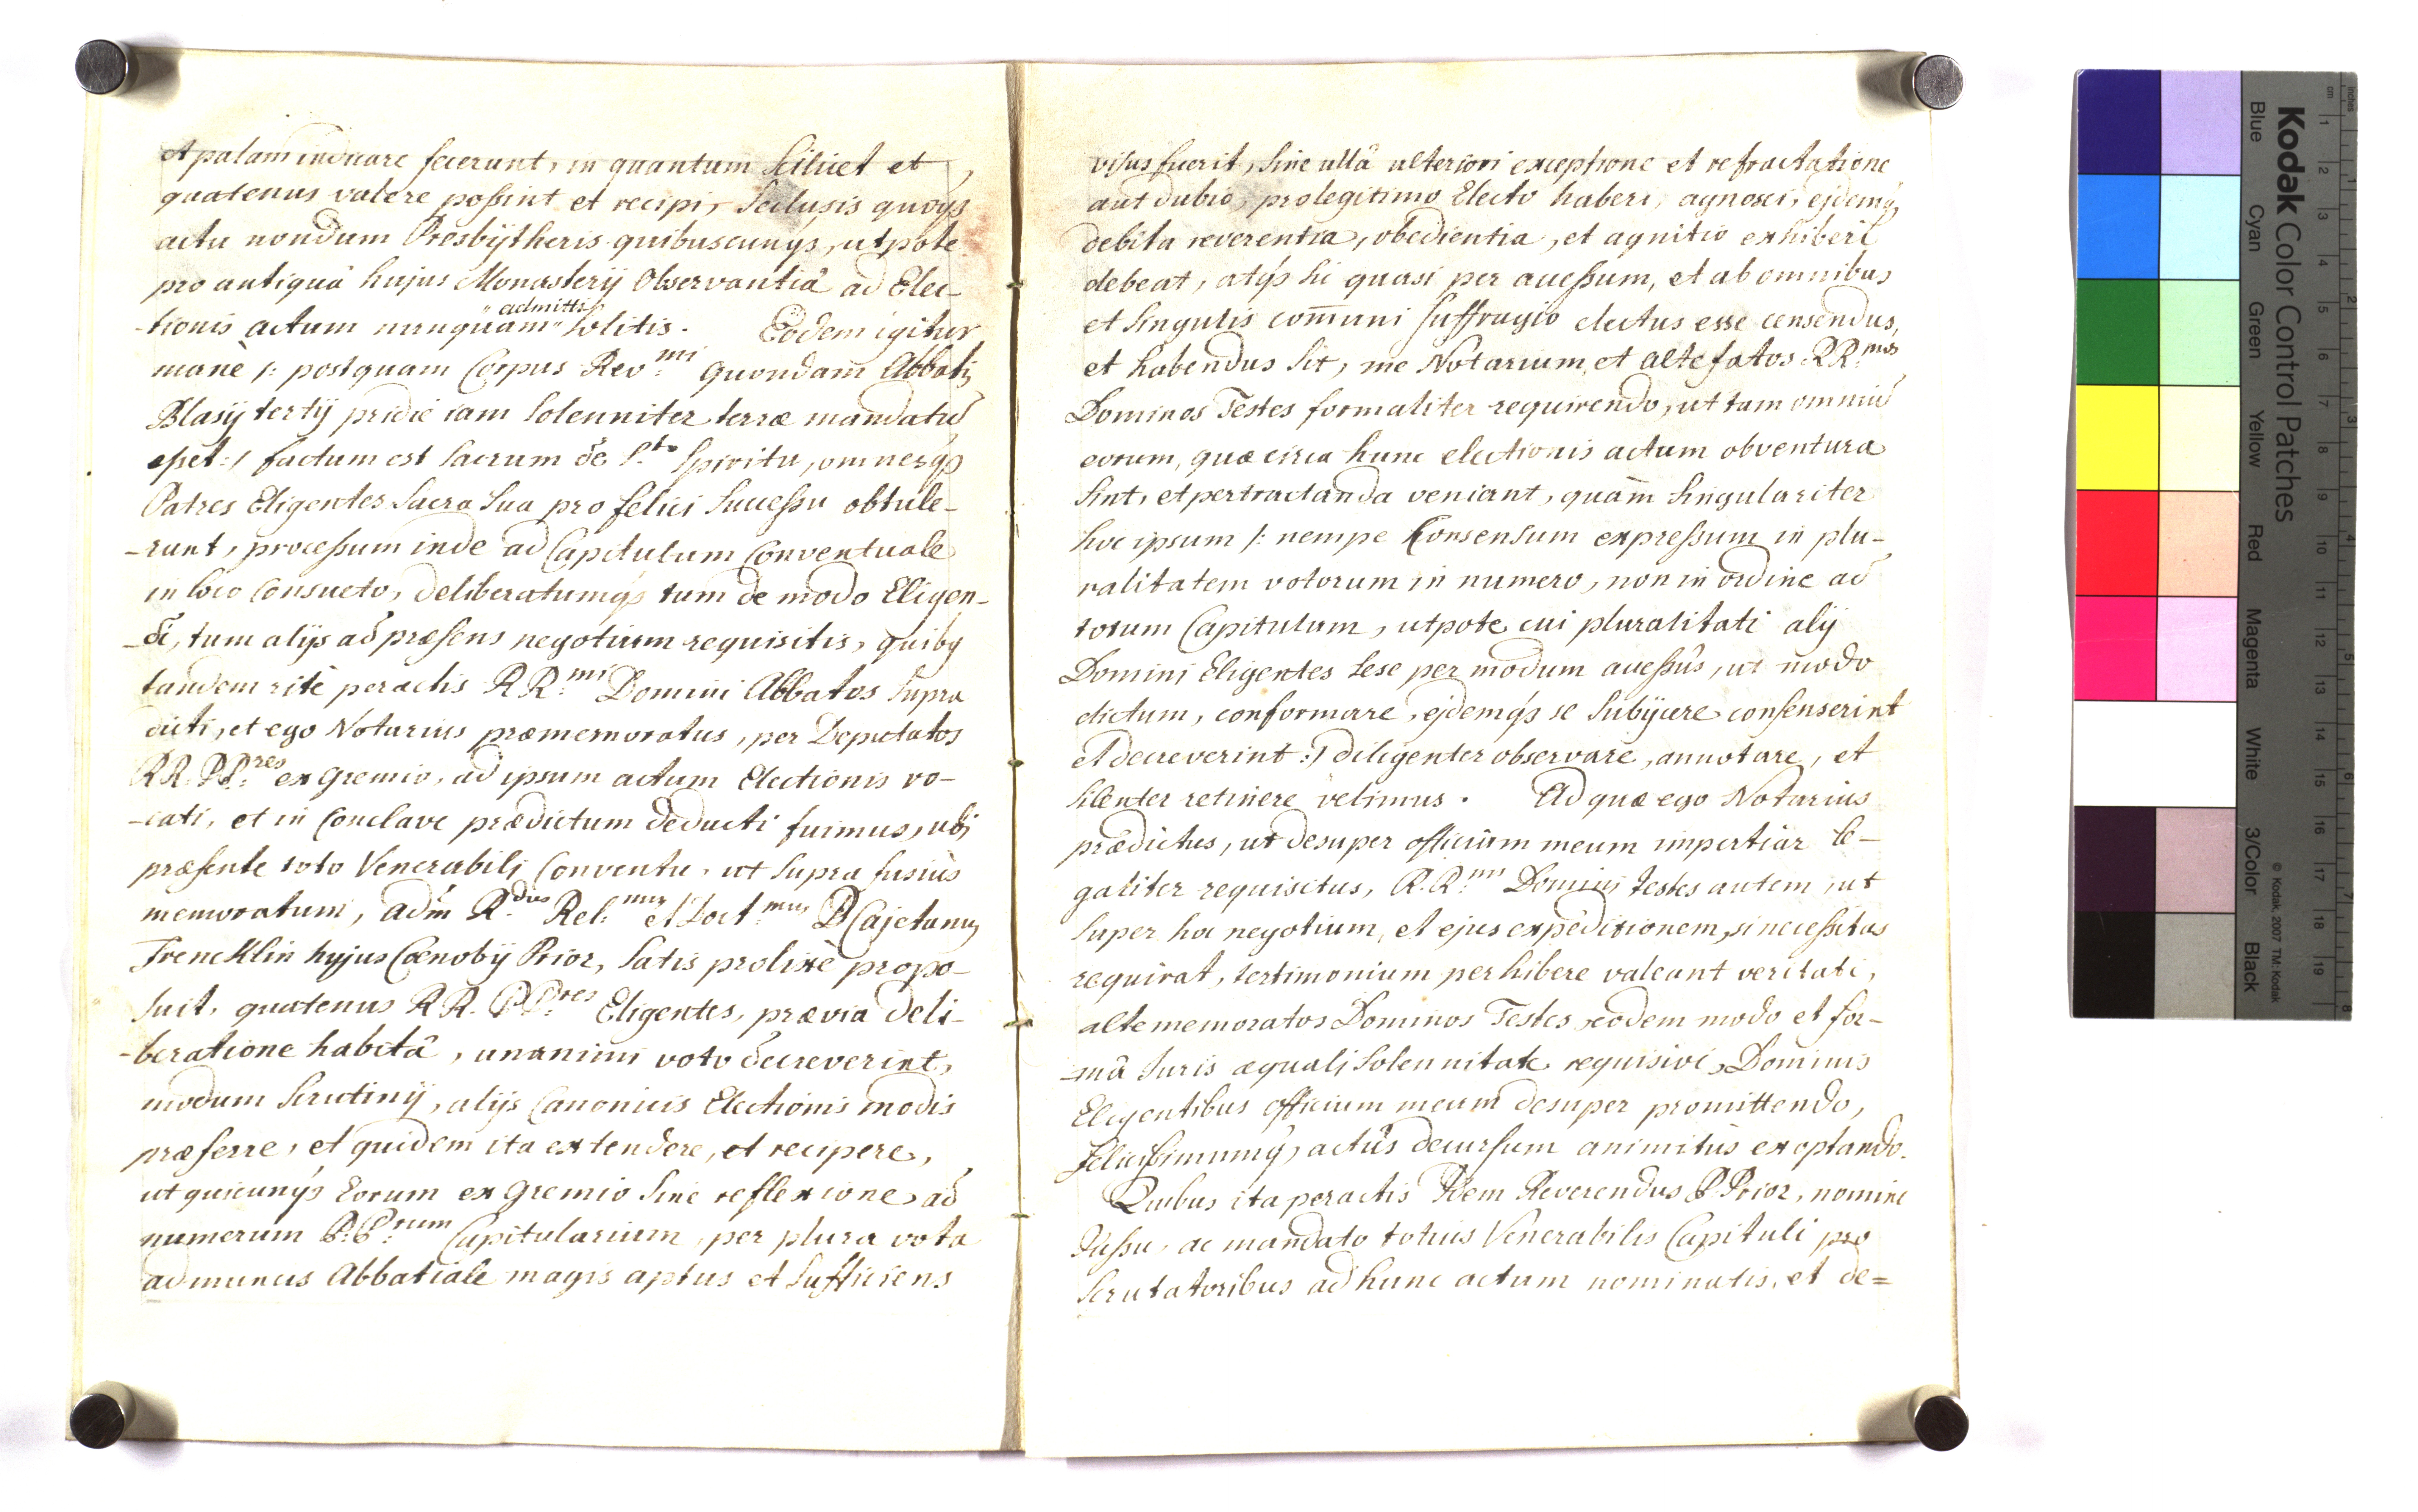 et palam indicare fecerunt, in quantum scilicet et
quatenus valere possint et recipi, Seclusis quoqȝ
actu nondum Presbÿtheris quibuscunqȝ, utpote
pro antiquâ hujus Monasterij Observantiâ ad Elec-
-tionis actum nunquam "admitti" solitis. Eodem igitur
manè /: postquam Corpus Rev:mi quondam Abbatis
Blasij tertij pridie iam solenniter terræ mandatū
esset :/ factum est sacrum de S:to Spiritu, omnesqȝ
Patres Eligentes Sacra Sua pro felici Successu obtule-
-runt, processum inde ad Capitulum Conventuale
in loco Consueto, deliberatumqȝ tum de modo Eligen-
-di, tum alijs ad præsens negotium requisitis, quibȝ
tandem ritè peractis RR:mi Domini Abbates Supra
dicti, et ego Notarius præmemoratus, per Deputatos
RR. PP:res ex gremio, ad ipsum actum Electionis vo-
-cati, et in Conclave prædictum deducti fuimus, ubi
præsente toto Venerabili Conventu, ut supra fusiùs
memoratum, adm R:dus Rel:mus et Doct:mus P. Cajetanus
Frencklin hujus Cœnobij Prior, Satis prolixè propo-
suit, quatenus RR. PP:res Eligentes, prævia deli-
-beratione habitâ, unanimi voto decreverint,
modum Scrutinij, alijs Canonicis Electionis modis
præferre, et quidem ita extendere, et recipere,
ut quicunqȝ Eorum ex gremio Sine reflexione ad
numerum P.P:rum Capitularium, per plura vota
ad munus Abbatiale magis aptus et Sufficiens
visus fuerit, sine ullâ ulteriori exceptione et refractatione
aut dubio, pro legitimo Electo haberi, agnosci, ejdemqȝ
debita reverentia, obedientia, et agnitio exhiberi
debeat, atqȝ hi quasi per accessum, et ab omnibus
et singulis com̄uni suffragio electus esse censendus,
et habendus sit, me Notarium, et alte fatos RR:mos
Dominos Testes formaliter requirendo, ut tam omniū
eorum, quæ circa hunc electionis actum obventura
sint, et pertractanda veniant, quàm singulariter
hoc ipsum /: nempe Consensum expressum in plu-
ralitatem votorum in numero, non in ordine ad
totum Capitulum, utpote cui pluralitati alij
Domini Eligentes sese per modum accessûs, ut modo
dictum, conformare, ejdemqȝ se subijcere consenserint
et decreverint :/ diligenter observare, annotare, et
silenter retinere velimus. Ad quæ ego Notarius
prædictus, ut desuper officium meum impertiar le-
galiter requisitus, R.R:mi Domini testes autem, ut
super hoc negotium, et ejus expeditionem, si necessitas
requirat, testimonium perhibere valeant veritati,
altememoratos Dominos Testes eodem modo et for-
-mâ Juris æquali Solennitate requisivi, Dominis
Eligentibus officium meum desuper promittendo,
felicissimumqȝ actûs decursum animitùs exoptando.
Quibus ita peractis Idem Reverendus P. Prior, nomine
Jussu, ac mandato totius Venerabilis Capituli pro
Scrutatoribus ad hunc actum nominatis, et de=
Kodak Color Control Patches
Blue Cyan Green Yellow Red Magenta White 3/Color Black
© Kodak, 2007 TM: Kodak
inches 1 2 3 4 5 6 7 8
cm 1 2 3 4 5 6 7 8 9 10 11 12 13 14 15 16 17 18 19